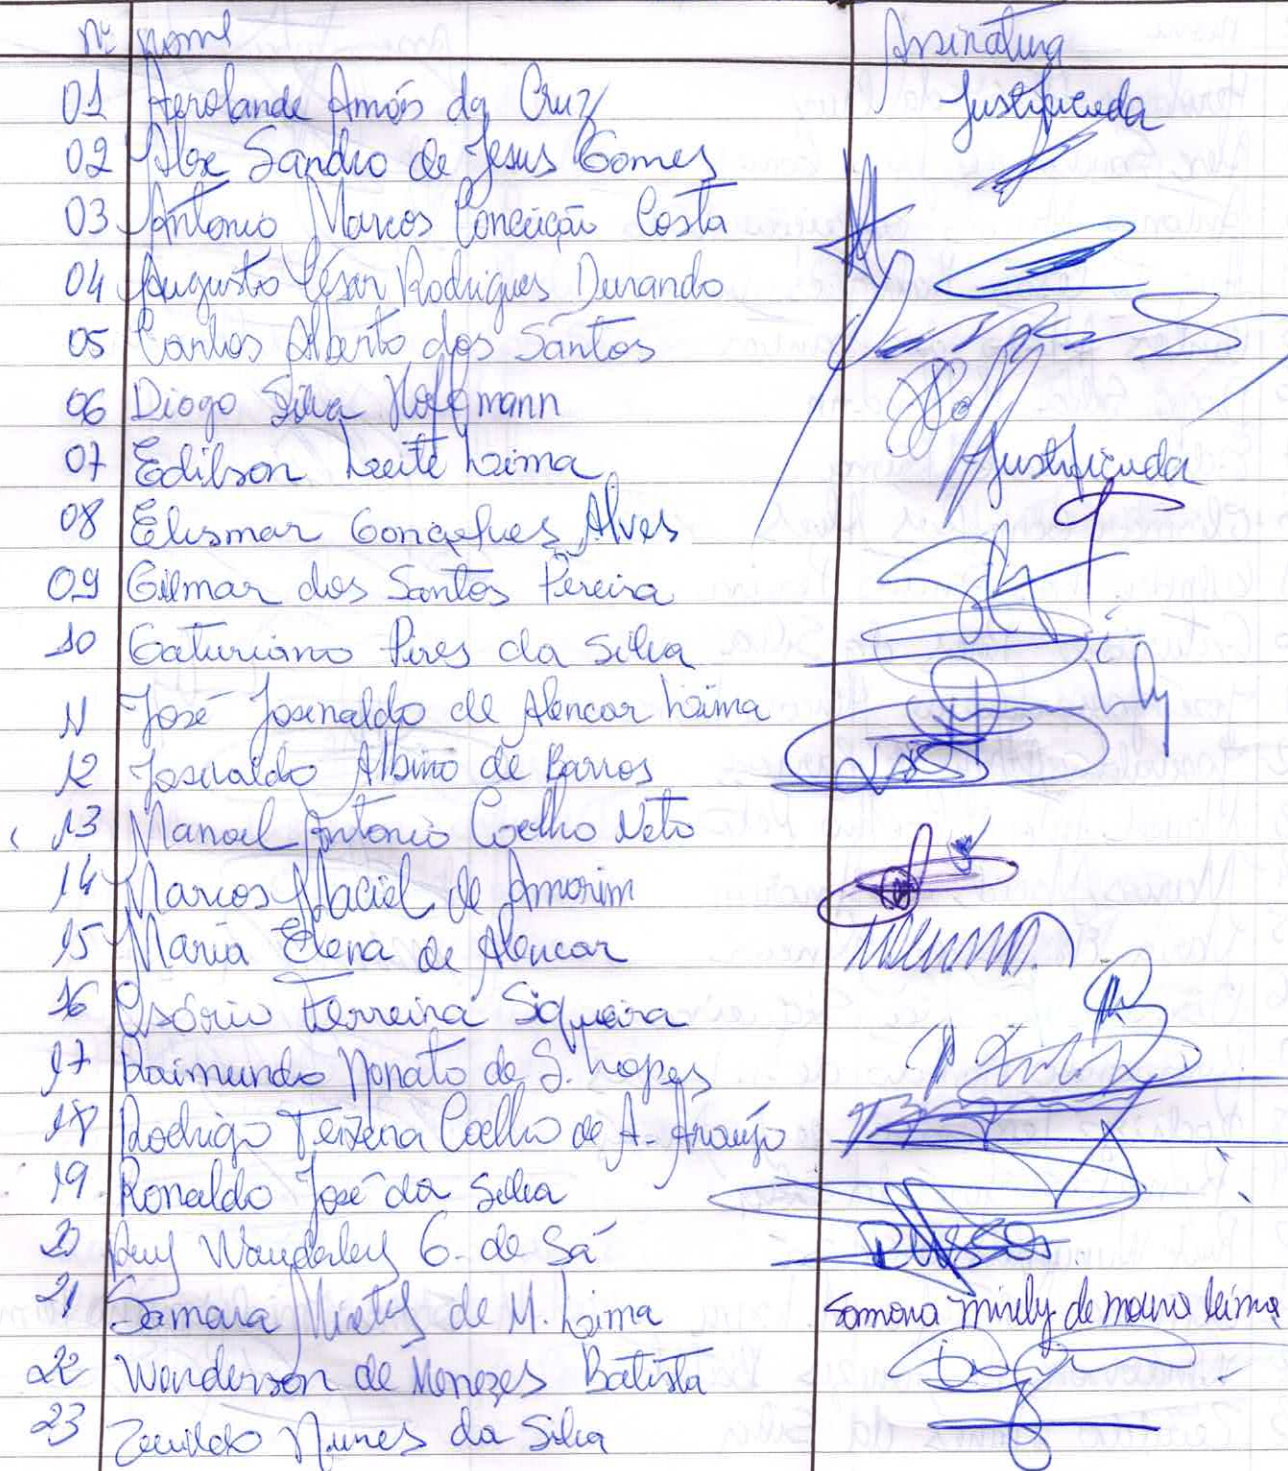 Nº Nome Assinatura
01 Aerolande Amós da Cruz Justificada
02 Alex Sandro de Jesus Gomes
03 Antonio Marcos Conceição Costa
04 Augusto César Rodrigues Durando
05 Carlos Alberto dos Santos
06 Diogo Silva Hoffmann
07 Edilson Leite Lima Justificada
08 Elismar Gonçalves Alves
09 Gilmar dos Santos Pereira
10 Gaturiano Pires da Silva
11 José Josenaldo de Alencar Lima
12 Josivaldo Albino de Barros
13 Manoel Antonio Coelho Neto
14 Marcos Maciel de Amorim
15 Maria Elena de Alencar
16 Osório Ferreira Siqueira
17 Raimundo Nonato de S. Lopes
18 Rodrigo Teixeira Coelho de A. Araújo
19 Ronaldo José da Silva
20 Ruy Wanderley G. de Sá
21 Samara Mirely de M. Lima Samara Mirely de Moura Lima
22 Wanderson de Menezes Batista
23 Zenildo Nunes da Silva